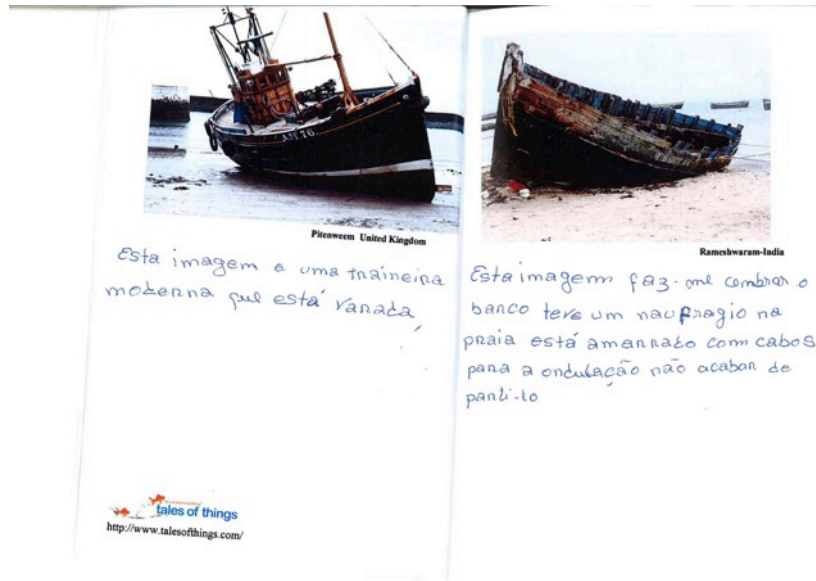 AH 76
Pitenweem United Kingdom
Esta imagem e uma traineira
moderna que está varada
tales of things
http://www.talesofthings.com/
Rameshwaram-India
Esta imagem faz-me lembrar o
barco teve um naufragio na
praia está amarrado com cabos
para a ondulação não acabar de
parti-lo